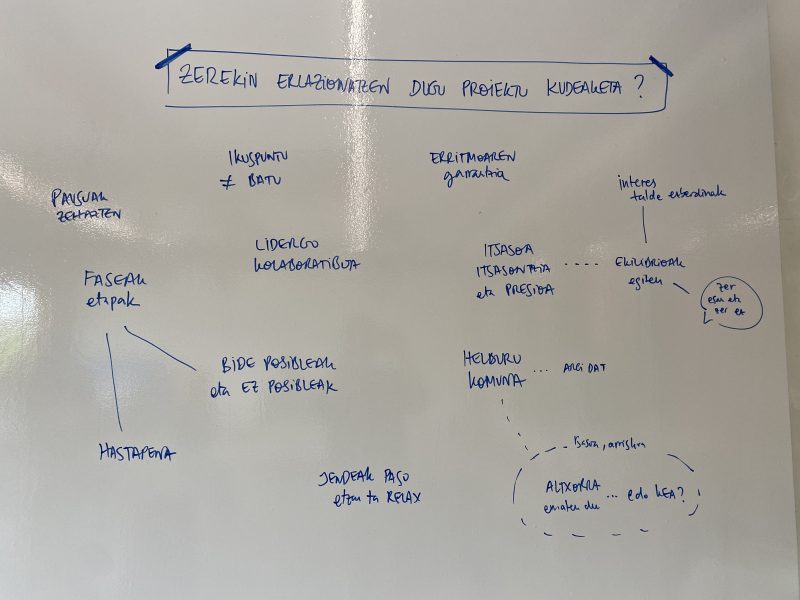 ZEREKIN ERLAZIONATZEN DUGU PROIEKTU KUDEAKETA ?
IKUSPUNTU
≠ BATU
ERRITMOAREN
garrantzia
interes
talde ezberdinak
PAUSUAK
ZEHAZTEN
LIDERGO
KOLABORATIBOA
ITSASOA
ITSASONTZIA
eta PRESIOA
EKILIBRIOAK
egiten
zer
esan eta
zer ez
FASEAK
etapak
BIDE POSIBLEAK
eta EZ POSIBLEAK
HELBURU
KOMUNA
... ARGI DAT
HASTAPENA
JENDEAK PASO
etzan ta RELAX
Itsasoa, arriskua
ALTXORRA
ematen du
... edo KEA?